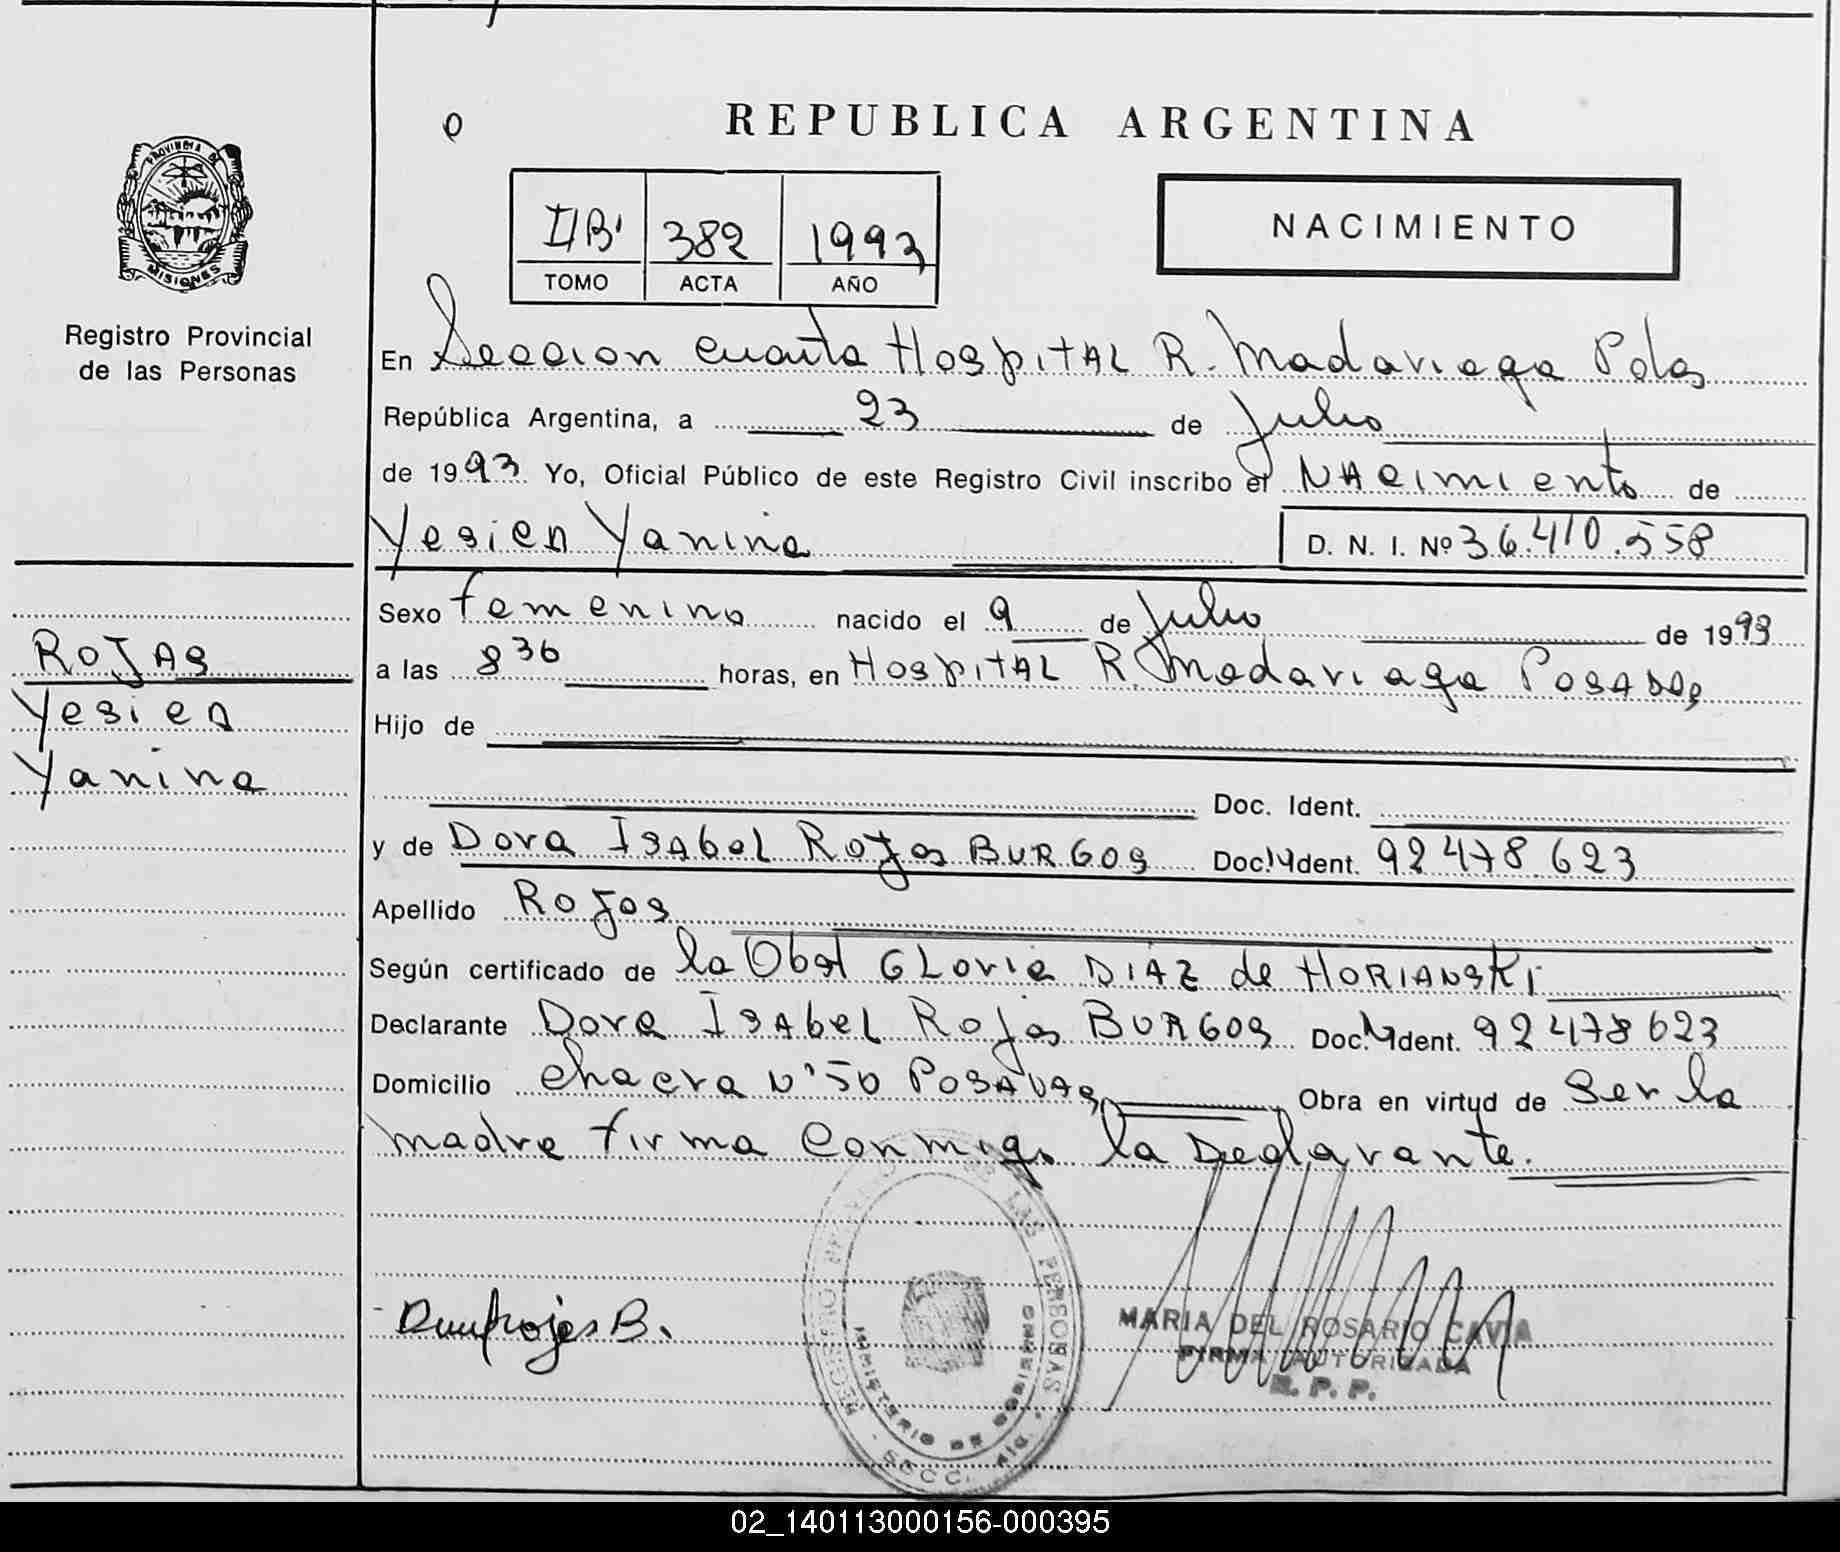 REPUBLICA ARGENTINA
PROVINCIA DE
MISIONES
Registro Provincial
de las Personas
II B' 382 1993
TOMO ACTA AÑO
NACIMIENTO
En Seccion cuarta Hospital R. Madariaga Pdas
República Argentina, a 23 de Julio
de 1993 Yo, Oficial Público de este Registro Civil inscribo el NAcimiento de
Yesien Yanina D. N. I. Nº 36.410.558
Sexo femenino nacido el 9 de Julio de 1993
ROJAS
a las 8 36 horas, en HospitAL R. Madariaga PosADAs
Yesien
Hijo de
Yanina
Doc. Ident.
y de Dora ISAbel Rojas BURGOS Doc. Ident. 92 478.623
Apellido Rojas
Según certificado de la Obst GLoria DIAZ de HORIANSKI
Declarante Dora ISAbel Rojas BURGOS Doc. Ident. 92 478 623
Domicilio chacra Nº 50 POSADAS Obra en virtud de ser la
madre firma conmigo la Declarante.
REGISTRO DE LAS PERSONAS
MINISTERIO DE GOBIERNO
SECC.
Rojas B.
MARIA DEL ROSARIO CAVIA
FIRMA AUTORIZADA
R. P. P.
02_140113000156-000395